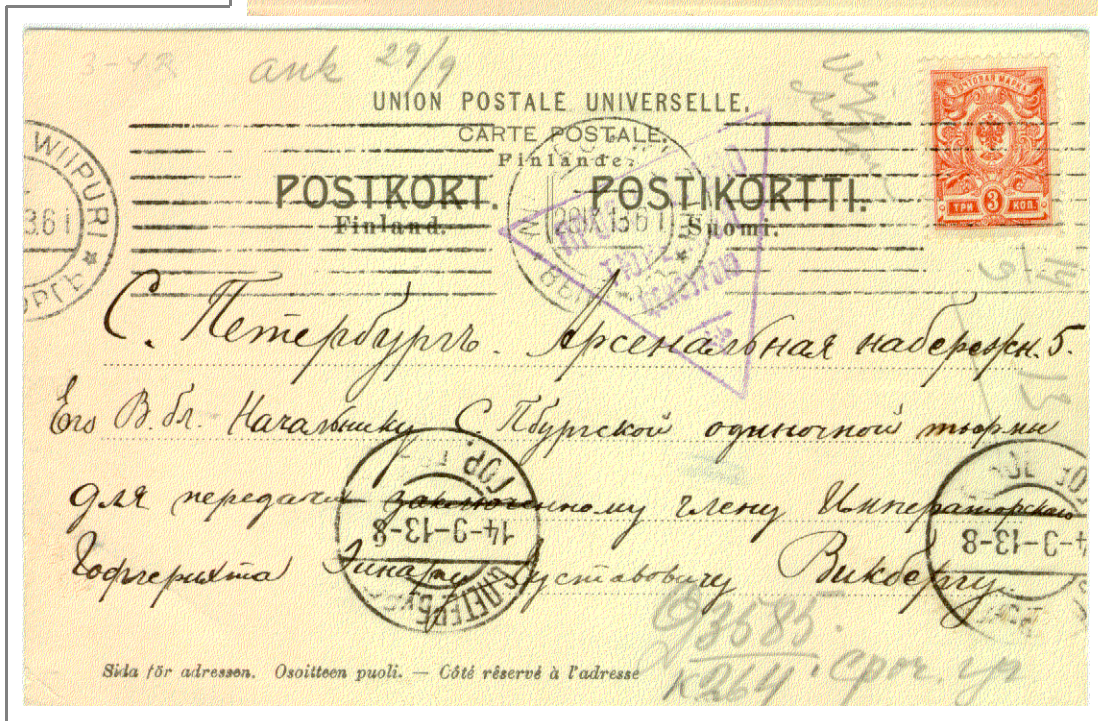 ank 29/9
UNION POSTALE UNIVERSELLE.
CARTE POSTALE.
Finlande.
POSTKORT. POSTIKORTTI.
Finland. Suomi.
ПОЧТОВАЯ МАРКА
ТРИ 3 КОП.
WIIPURI
28 IX 13 6 I
ЦЕНЗУРОЮ
С. Петербургъ. Арсенальная набережн. 5.
Его В. бл. Начальнику С. Пбургской одиночной тюрьмы
для передачи заключенному члену Императорскаго
Гофгерихта Эйнару Густавовичу Викбергу.
14-9-13-8
14-9-13-8
С.ПЕТЕРБУРГ
3585.
К 264 Сроч.
Sida för adressen. Osoitteen puoli. — Côté réservé à l'adresse